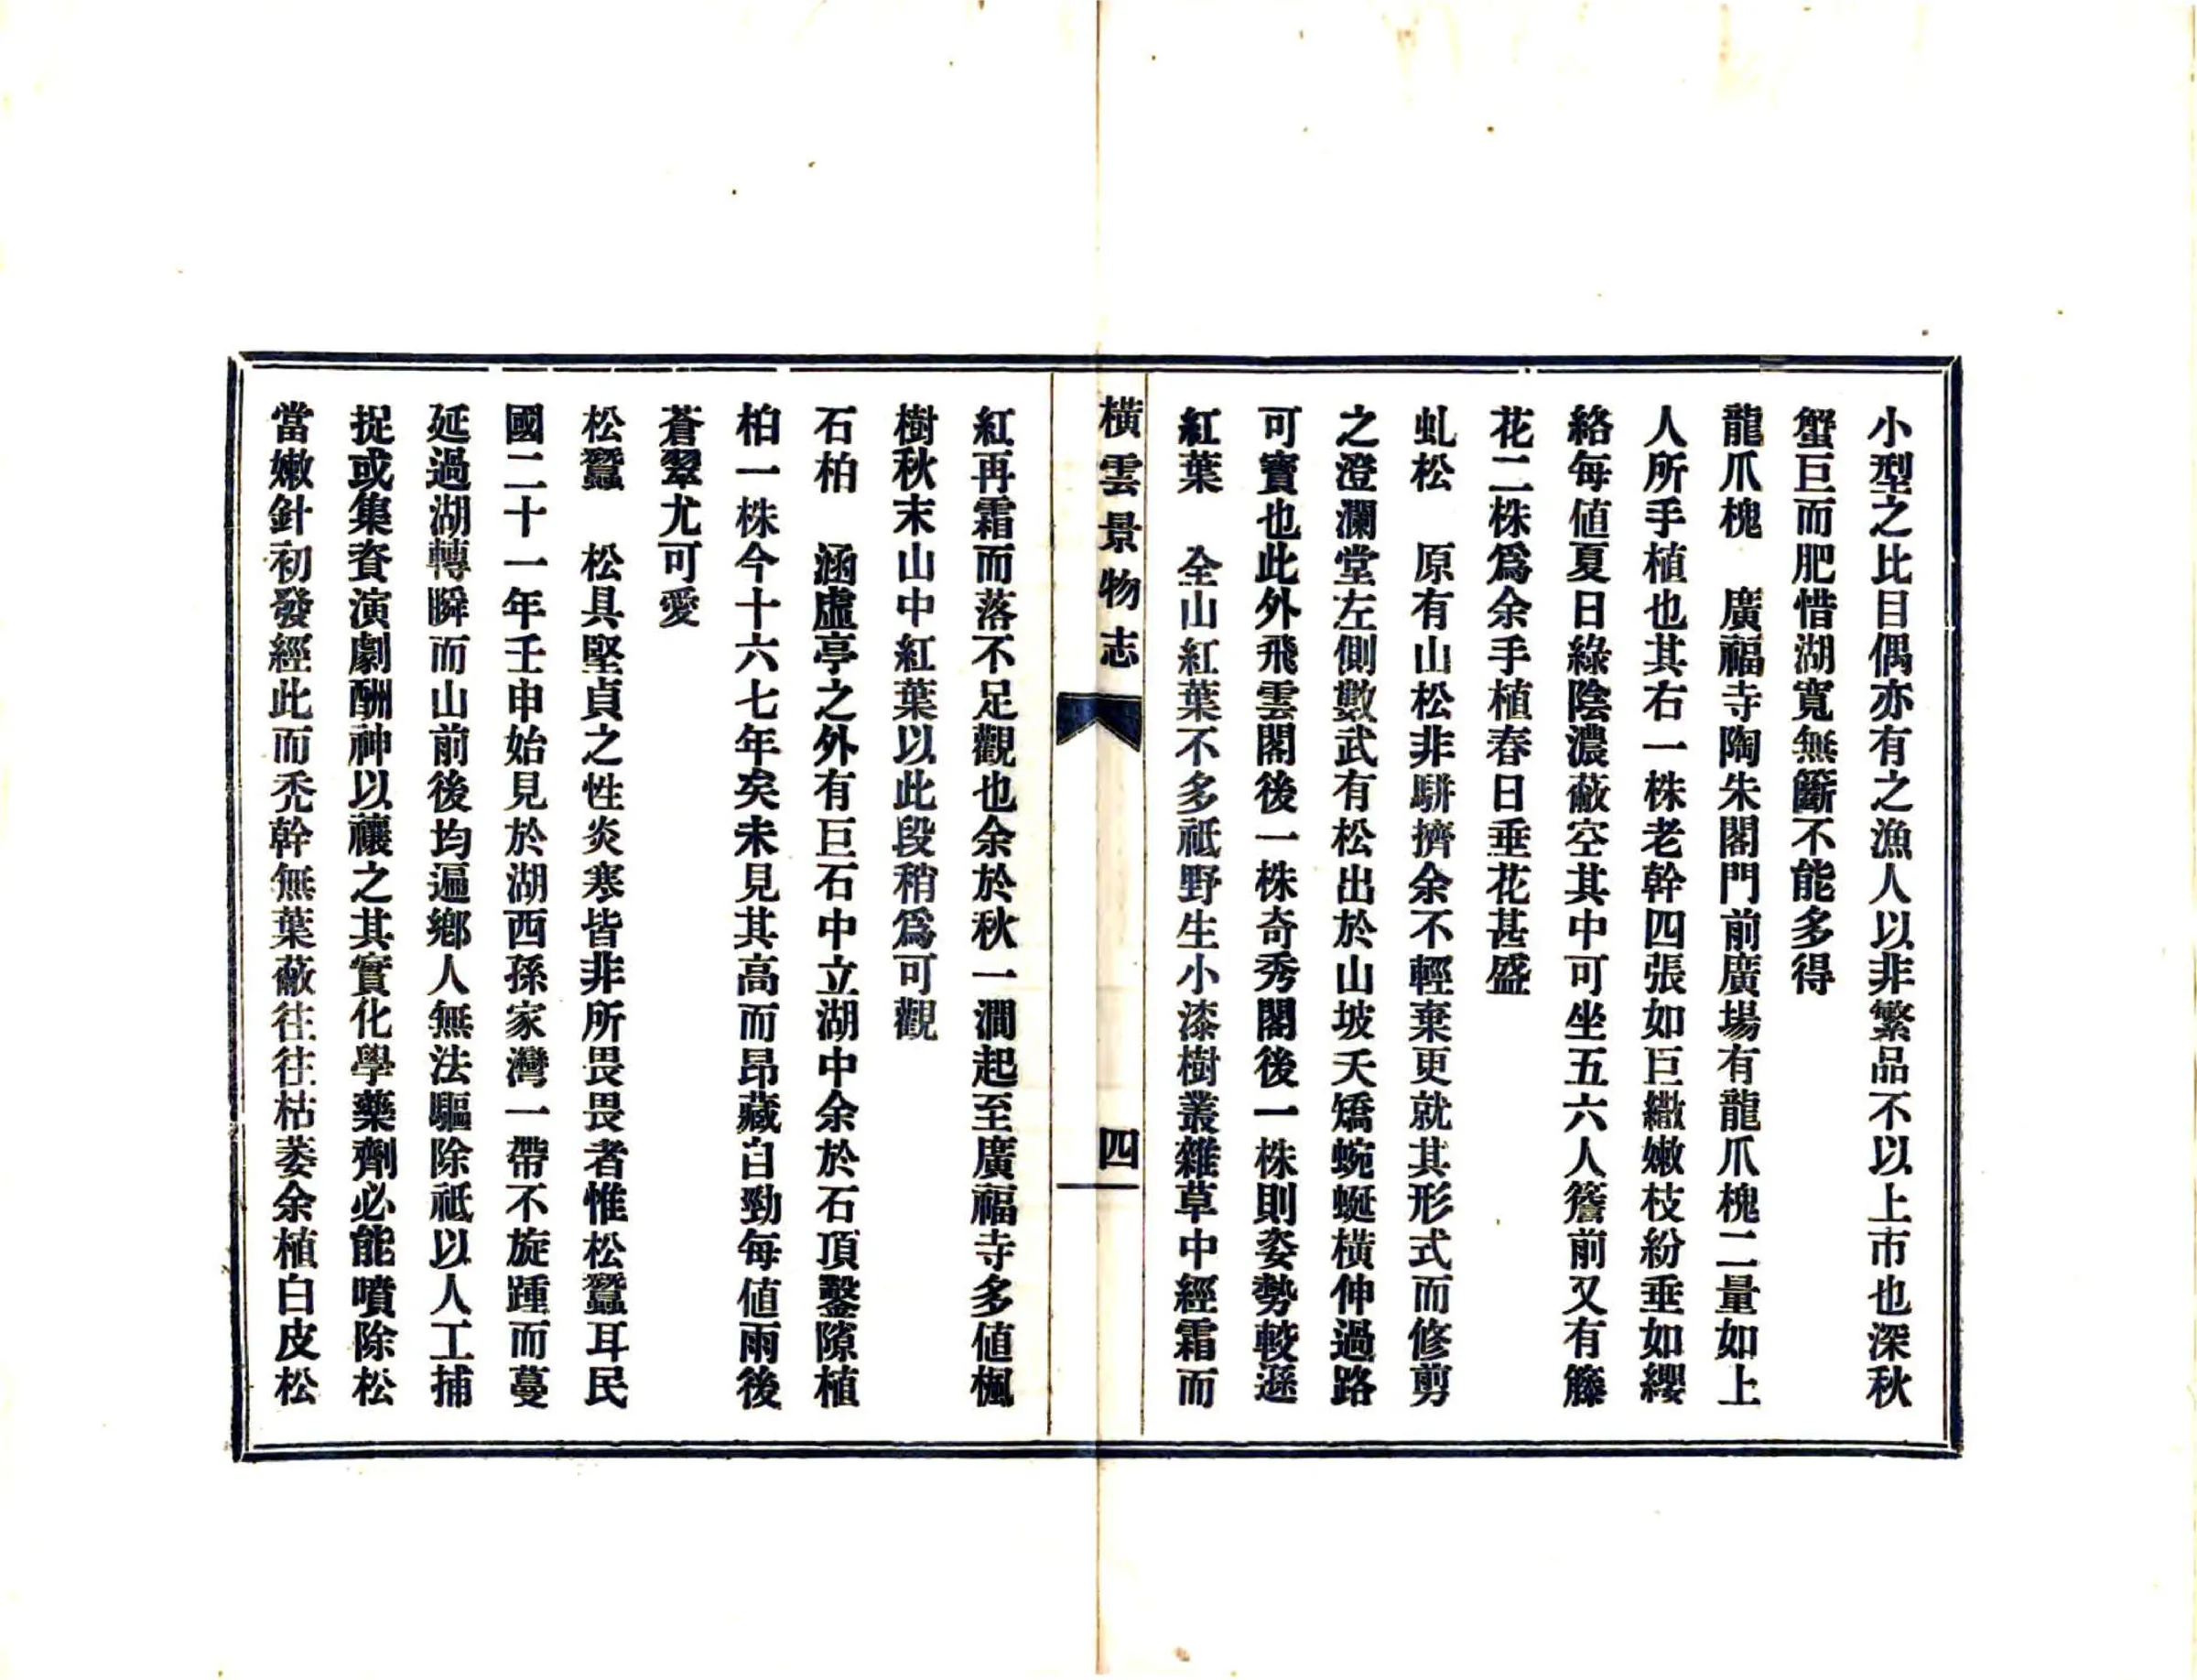 小型之比目偶亦有之漁人以非繁品不以上市也深秋
蟹巨而肥惜湖寬無籪不能多得
龍爪槐　廣福寺陶朱閣門前廣場有龍爪槐二量如上
人所手植也其右一株老幹四張如巨繖嫩枝紛垂如纓
絡每值夏日綠陰濃蔽空其中可坐五六人簷前又有籐
花二株爲余手植春日垂花甚盛
虬松　原有山松非駢擠余不輕棄更就其形式而修剪
之澄瀾堂左側數武有松出於山坡夭矯蜿蜒橫伸過路
可寶也此外飛雲閣後一株奇秀閣後一株則姿勢較遜
紅葉　全山紅葉不多祗野生小漆樹叢雜草中經霜而
橫雲景物志
四
紅再霜而落不足觀也余於秋一澗起至廣福寺多値楓
樹秋末山中紅葉以此段稍爲可觀
石柏　涵虛亭之外有巨石中立湖中余於石頂鑿隙植
柏一株今十六七年矣未見其高而昂藏白勁每値雨後
蒼翠尤可愛
松蠶　松具堅貞之性炎寒皆非所畏畏者惟松蠶耳民
國二十一年壬申始見於湖西孫家灣一帶不旋踵而蔓
延過湖轉瞬而山前後均遍鄉人無法驅除祗以人工捕
捉或集資演劇酬神以禳之其實化學藥劑必能噴除松
當嫩針初發經此而禿幹無葉蔽往往枯萎余植白皮松